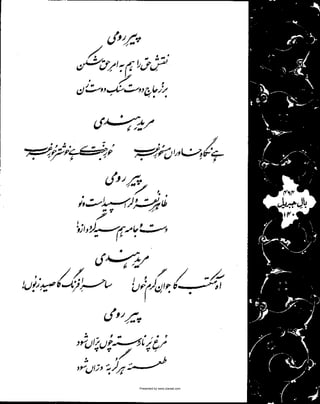 پیرِ رومی
نقشِ حق را ہم بہ امرِ حق شکن
بر زجاجِ دوست سنگِ دوست زن
مریدِ ہندی
ہے نگاہِ خاوراں مسحورِ غرب
حورِ جنت سے ہے خوشتر حورِ غرب
پیرِ رومی
ظاہرِ نقرہ گر اسپید است و نو
دست و جامہ ہم سیہ گردد ازو
مریدِ ہندی
آہ مکتب کا جوانِ گرم خوں!
ساحرِ افرنگ کا صیدِ زبوں!
پیرِ رومی
مرغِ پر نارستہ چوں پرّاں شود
طعمۂ ہر گربۂ درّاں شود
بالِ جبریل